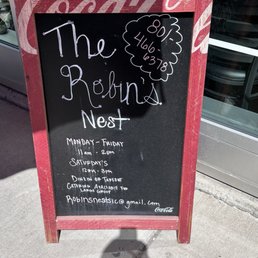 Coca-Cola
The
Robin's
Nest
801-
466-
6378
MONDAY - FRIDAY
11am - 8pm
SATURDAY'S
12pm - 8pm
DINE IN OR TAKEOUT
CATERING AVAILABLE FOR
LARGE GROUP
ROBINSNESTSLC@gmail.com
Coca-Cola